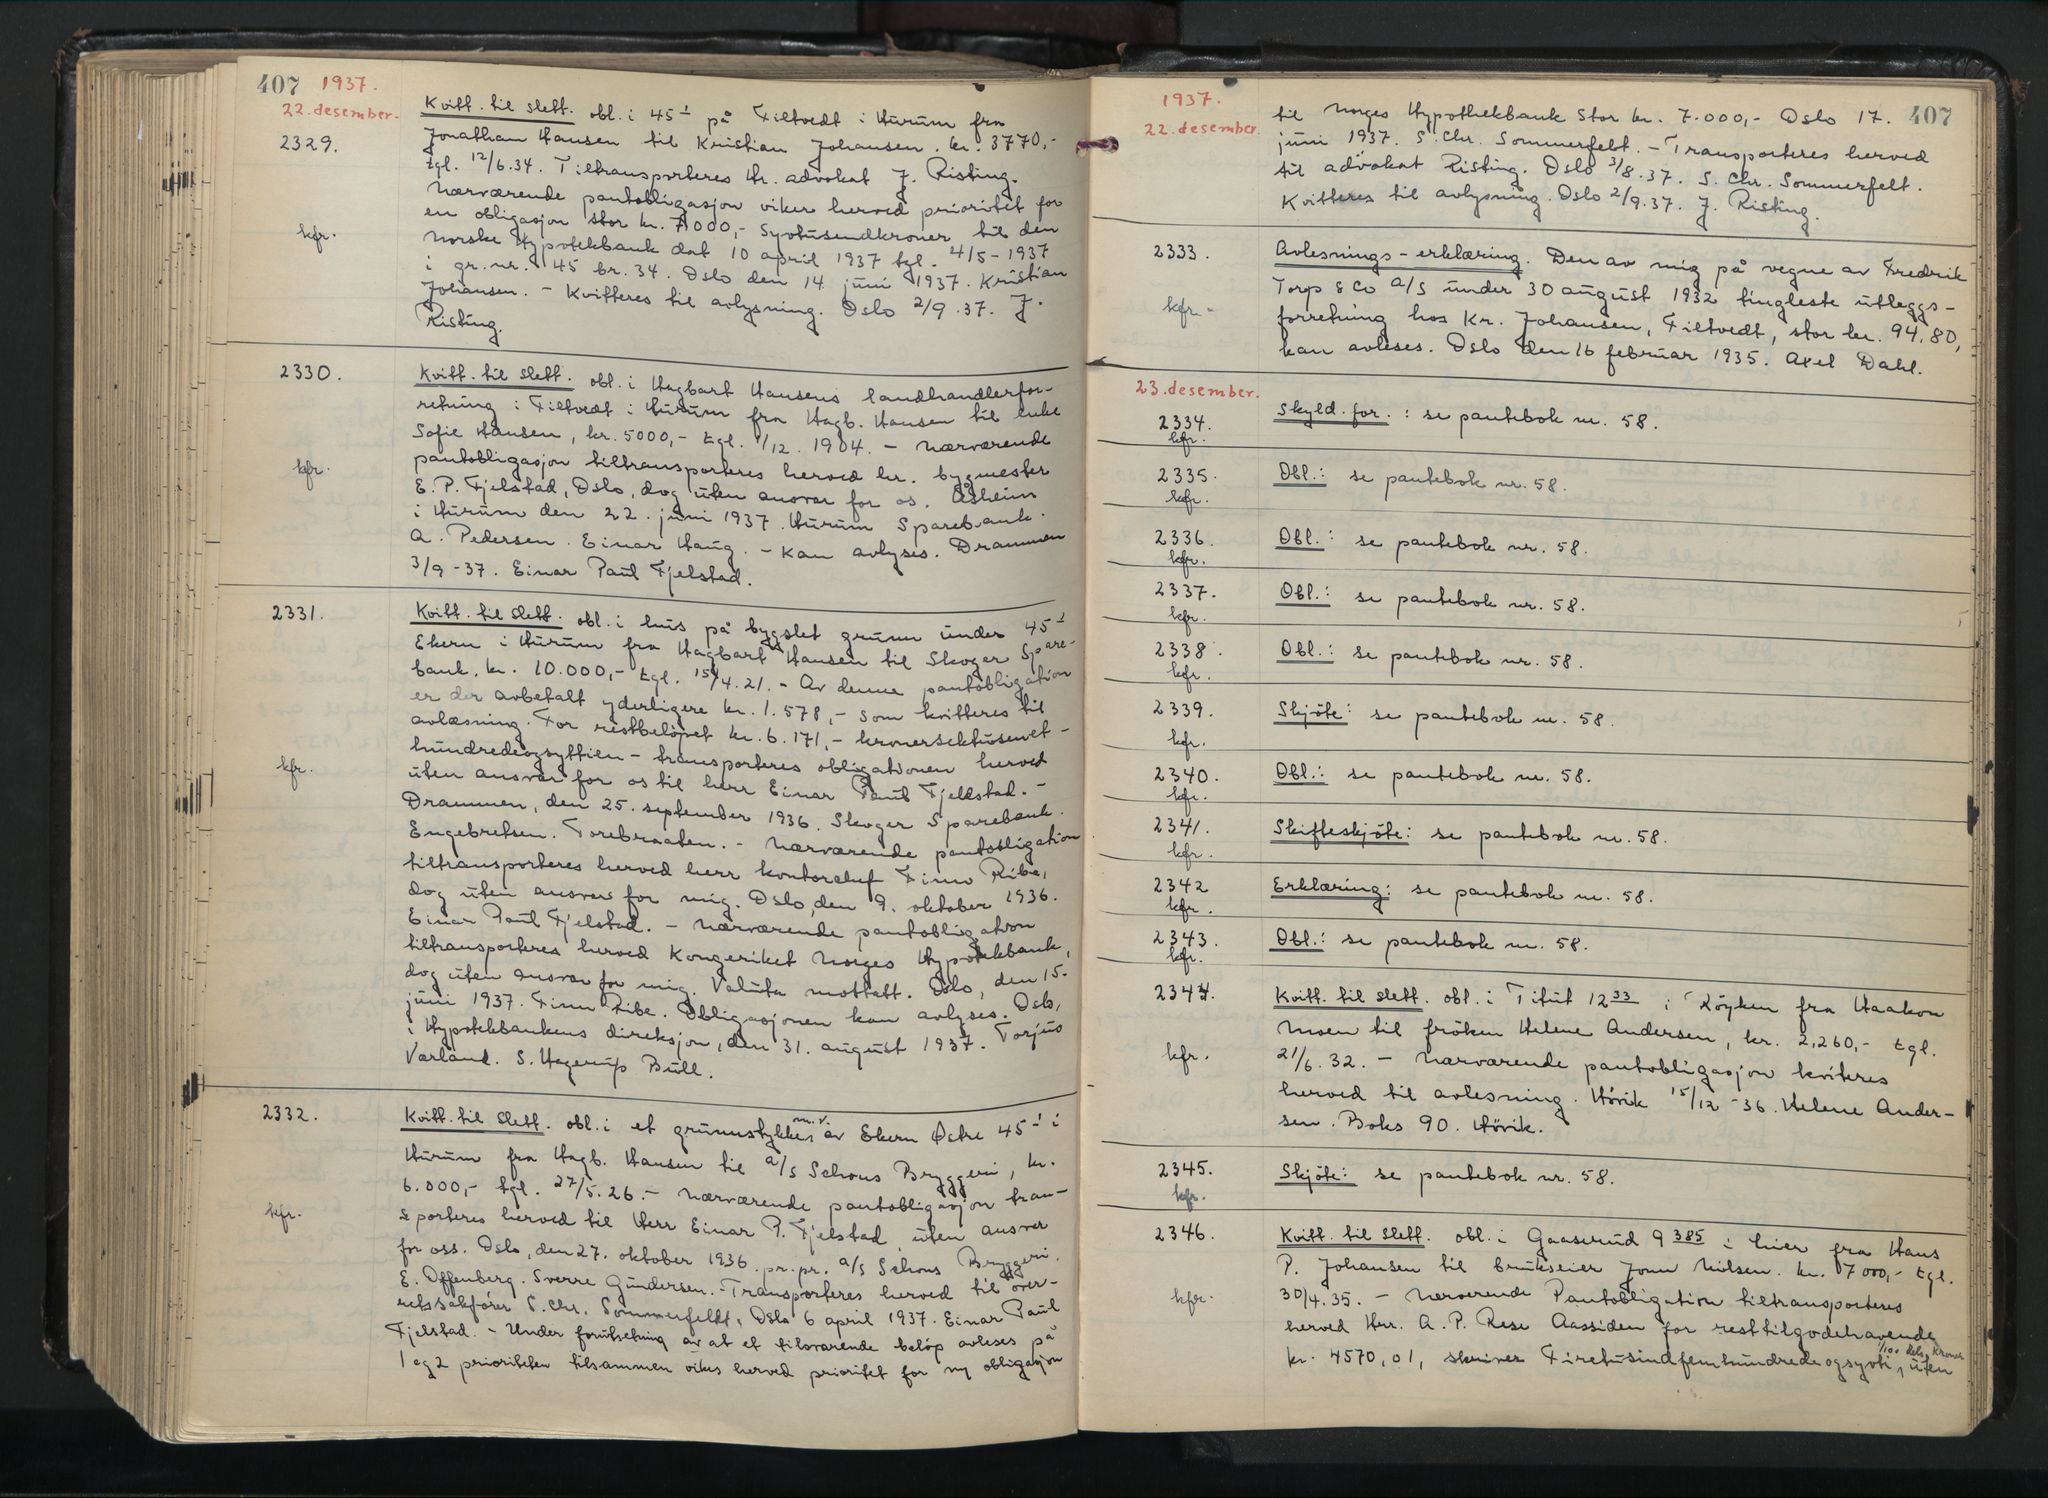 407 1937.
22. desember.
2329.
kfr.
Kvitt. til slett. obl. i 45¹ på Filtvedt i Hurum fra
Jonathan Hansen til Kristian Johansen. kr. 3770,-
tgl. 12/6.34. Tiltransporteres hr. advokat J. Risting.
Nærværende pantobligasjon viker herved prioritet for
en obligasjon stor kr. 7000,- Syvtusendkroner til den
Norske Hypotekbank dat 10 april 1937 tgl. 4/5-1937
i gr.nr. 45 br. 34. Oslo den 14 juni 1937. Kristian
Johansen. - Kvitteres til avlysning. Oslo 2/9.37. J.
Risting.
2330.
kfr.
Kvitt. til slett. obl. i Hagbart Hansens landhandlerfor-
retning i Filtvedt i Hurum fra Hagb. Hansen til enke
Sofie Hansen, kr. 5000,- tgl. 1/12.1904. - Nærværende
pantobligasjon tiltransporteres herved hr. bygmester
E. P. Fjelstad, Oslo, dog uten ansvar for os. Åsheim
i Hurum den 22. juni 1937. Hurum Sparebank.
A. Pedersen. Einar Haug. - Kan avlyses. Drammen
3/9-37. Einar Paul Fjelstad.
2331.
kfr.
Kvitt. til slett. obl. i hus på bygslet grunn under 45¹
Ekern i Hurum fra Hagbart Hansen til Skoger Spare-
bank, kr. 10.000,- tgl. 15/4.21. - Av denne pantobligation
er der avbetalt yderligere kr. 1.578,- som kvitteres til
avlæsning. For restbeløpet kr. 6.171,- kronersekstusenet-
hundredeogsyttien - transporteres obligationen herved
uten ansvar for os til herr Einar Paul Fjellstad. -
Drammen, den 25. september 1936. Skoger Sparebank.
Engebretsen. Torebraaten. - Nærværende pantobligation
tiltransporteres herved herr kontorchef Finn Ribe,
dog uten ansvar for mig. Oslo, den 9. oktober 1936.
Einar Paul Fjelstad. - Nærværende pantobligation
tiltransporteres herved Kongeriket Norges Hypotekbank,
dog uten ansvar for mig. Valuta mottatt. Oslo, den 15.
juni 1937. Finn Ribe. Obligasjonen kan avlyses. Oslo,
i Hypotekbankens direksjon, den 31. august 1937. Torjus
Værland. S. Hagerup Bull.
2332.
kfr.
Kvitt. til slett. obl. i et grunnstykke m.v. av Ekern Østre 45¹ i
Hurum fra Hagb. Hansen til a/s Schous Bryggeri, kr.
6.000,- tgl. 27/5.26. - Nærværende pantobligasjon tran-
sporteres herved til Herr Einar P. Fjelstad uten ansvar
for oss. Oslo, den 27. oktober 1936. pr. pr. a/s Schous Bryggeri.
E. Offenberg. Sverre Gundersen. - Transporteres herved til over-
retssakfører S. Chr. Sommerfeldt, Oslo 6 april 1937. Einar Paul
Fjelstad. - Under forutsetning av at et tilsvarende beløp avleses på
1 og 2 prioriteten tilsammen vikes herved prioritet for ny obligasjon
1937. 407
22. desember.
til Norges Hypothekbank stor kr. 7.000,- Oslo 17.
juni 1937. S. Chr. Sommerfelt. - Transporteres herved
til advokat Risting. Oslo 3/8.37. S. Chr. Sommerfelt.
Kvitteres til avlysning. Oslo 2/9.37. J. Risting.
2333.
kfr.
Avlesnings-erklæring. Den av mig på vegne av Fredrik
Torp & Co a/s under 30 august 1932 tingleste utleggs-
forretning hos Kr. Johansen, Filtvedt, stor kr. 94,80,
kan avleses. Oslo den 16 februar 1935. Axel Dahl.
23. desember.
2334. Skyld. for.: se pantebok nr. 58.
kfr.
2335. Obl.: se pantebok nr. 58.
kfr.
2336. Obl.: se pantebok nr. 58.
kfr.
2337. Obl.: se pantebok nr. 58.
kfr.
2338. Obl.: se pantebok nr. 58.
kfr.
2339. Skjöte: se pantebok nr. 58.
kfr.
2340. Obl.: se pantebok nr. 58.
kfr.
2341. Skifteskjöte: se pantebok nr. 58.
kfr.
2342 Erklæring: se pantebok nr. 58.
kfr.
2343. Obl.: se pantebok nr. 58.
kfr.
2344.
kfr.
Kvitt. til slett. obl. i Titut 12 33 i Röyken fra Haakon
Moen til fröken Helene Andersen, kr. 2,260,- tgl.
21/6.32. - Nærværende pantobligasjon kviteres
herved til avlesning. Hövik 15/12-36. Helene Ander-
sen. Boks 90. Hövik.
2345. Skjöte: se pantebok nr. 58.
kfr.
2346.
kfr.
Kvitt. til slett. obl. i Gaaserud 9 385 i Lier fra Hans
P. Johansen til brukseier Jonn Nilsen. kr. 7000,- tgl.
30/4.35. - Nærverende Pantobligation tiltransporteres
herved Hrr. A. P. Rese Aassiden for resttilgodehavende
kr. 4570,01, skriver Firetusindfemhundredeogsyvti 1/100 dels Kroner, uten